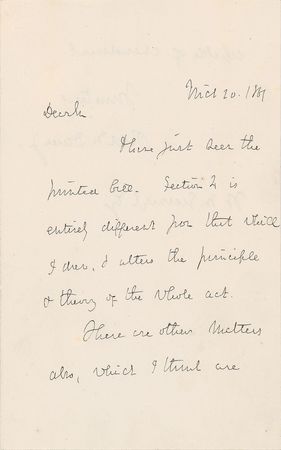 Mch 20. 1881
Dear Sir
I have just seen the
printed bill. Section 2 is
entirely different from that which
I drew, & alters the principle
& theory of the whole act.
There are other matters
also, which I think are